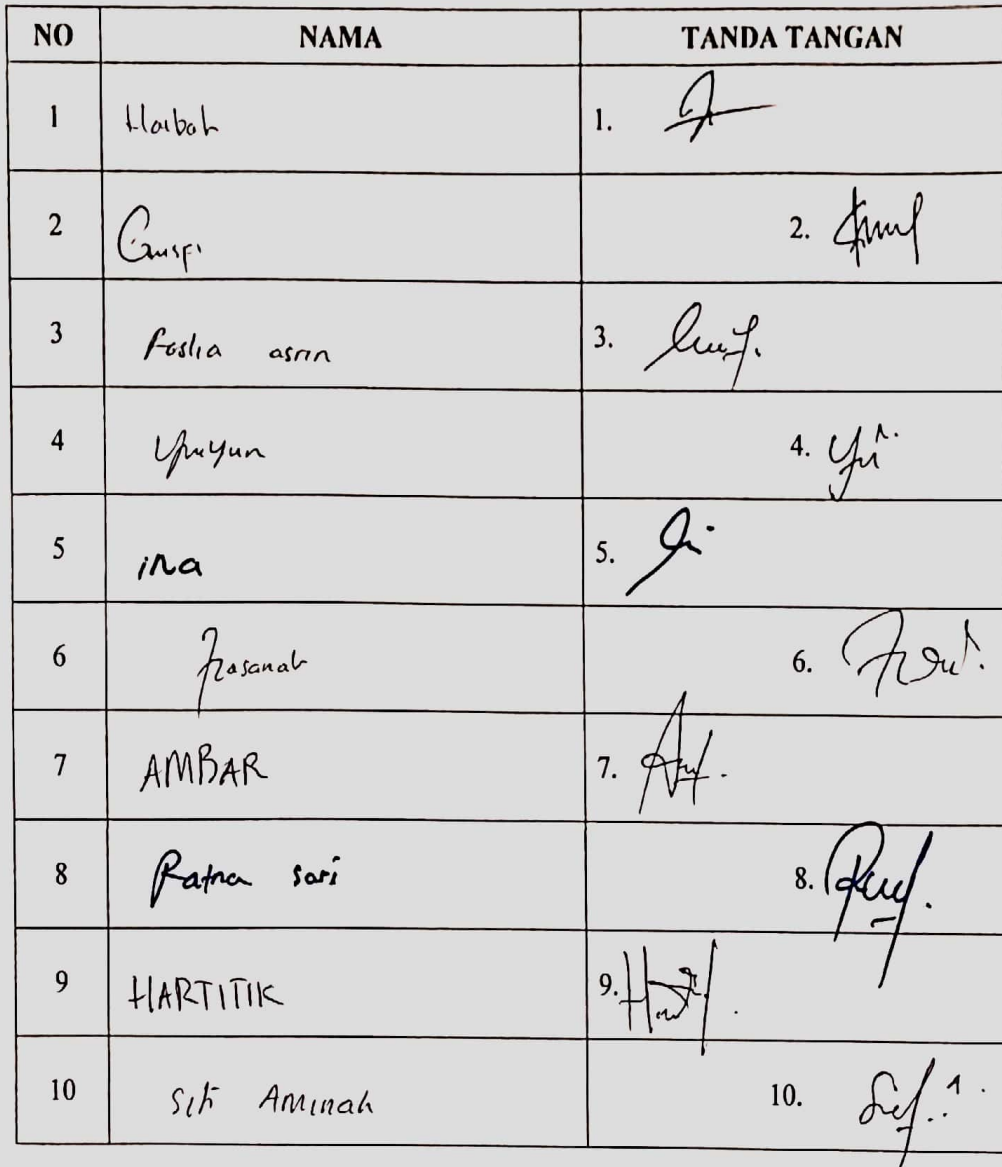 NO NAMA TANDA TANGAN
1 Haibah 1.
2 2.
3 asrin 3.
4 Yuyun 4.
5 ina 5.
6 Hasanah 6.
7 AMBAR 7.
8 Ratna sari 8.
9 HARTITIK 9.
10 Siti Aminah 10.